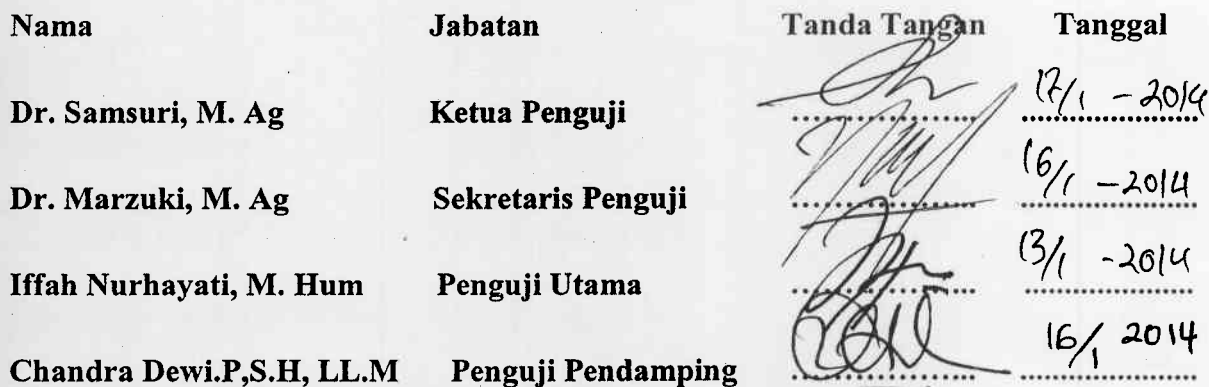 Nama Jabatan Tanda Tangan Tanggal
Dr. Samsuri, M. Ag Ketua Penguji 17/1 - 2014
Dr. Marzuki, M. Ag Sekretaris Penguji 16/1 - 2014
Iffah Nurhayati, M. Hum Penguji Utama 13/1 - 2014
Chandra Dewi.P,S.H, LL.M Penguji Pendamping 16/1 2014